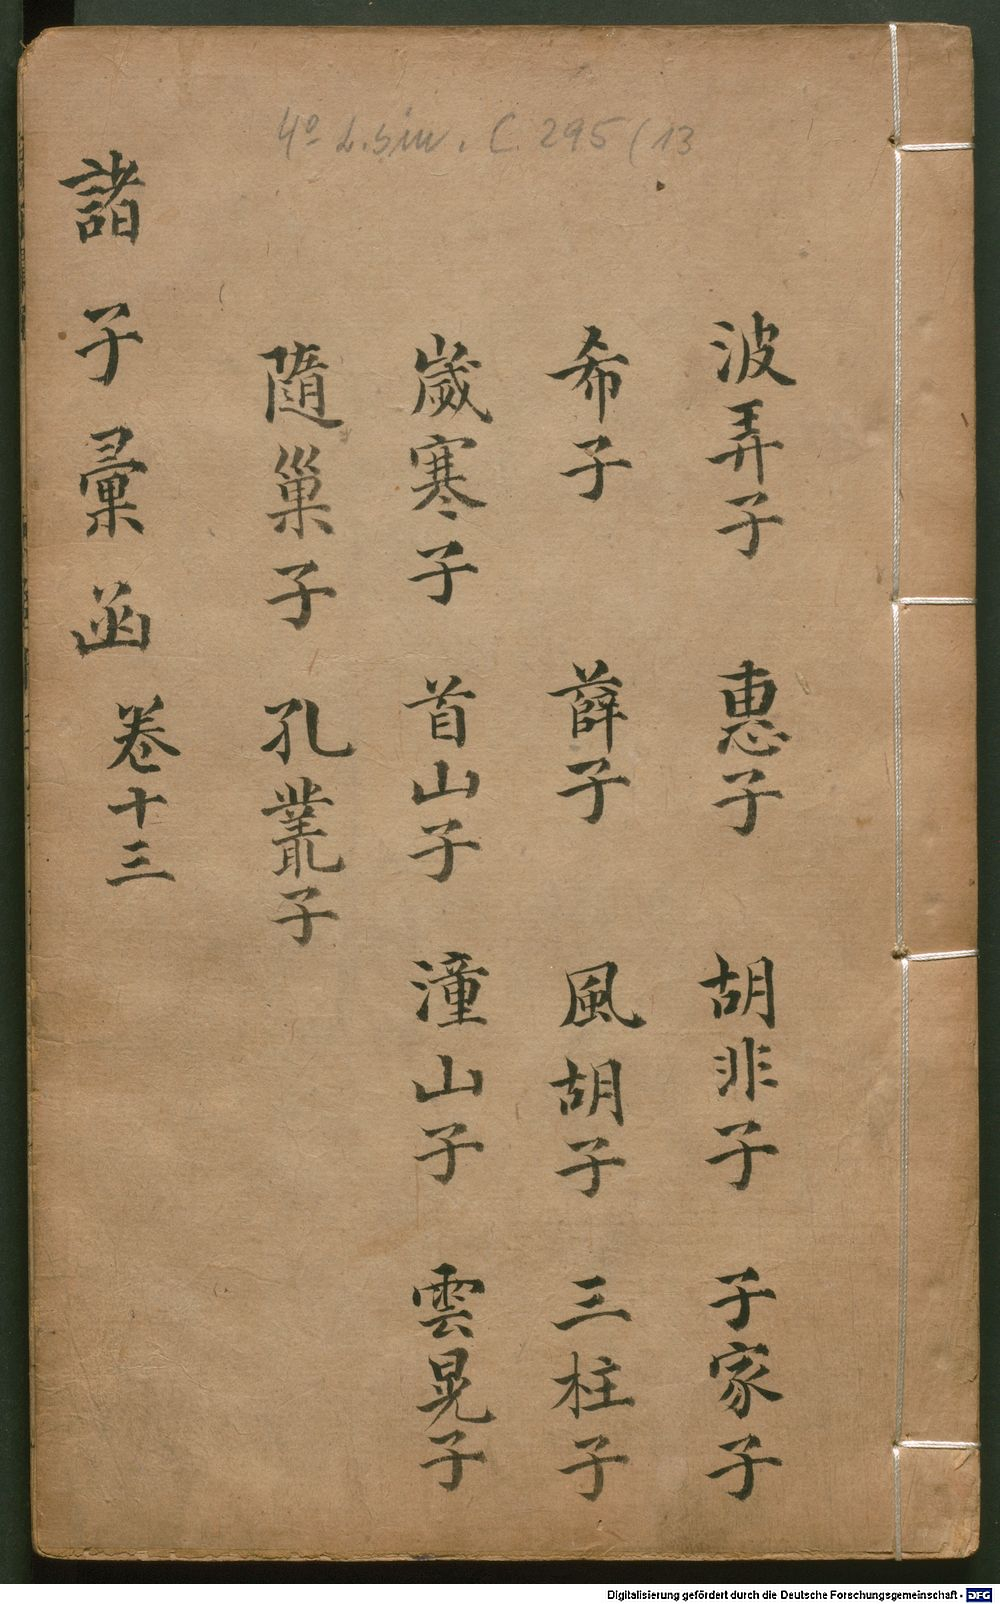 4º L.sin. C 295(13
波弄子 惠子 胡非子 子家子
希子 薛子 風胡子 三柱子
歲寒子 首山子 潼山子 雲晃子
隨巢子 孔叢子
諸子彙函 卷十三
Digitalisierung gefördert durch die Deutsche Forschungsgemeinschaft - DFG